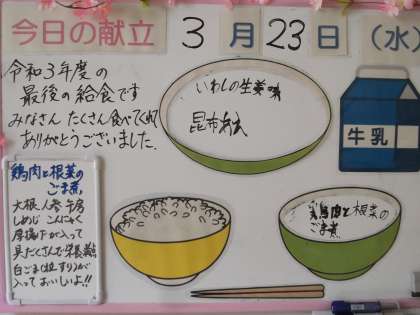 今日の献立 3月23日(水)
令和3年度の
最後の給食です
みなさん たくさん食べてくれて
ありがとうございました.
いわしの生姜味
昆布あえ
牛乳
鶏肉と根菜の
ごま煮
大根 人参 牛房
しめじ こんにゃく
厚揚げが入って
具だくさんで栄養満点
白ごま(粒,すり)が
入っておいしいよ!!
鶏肉と根菜の
ごま煮